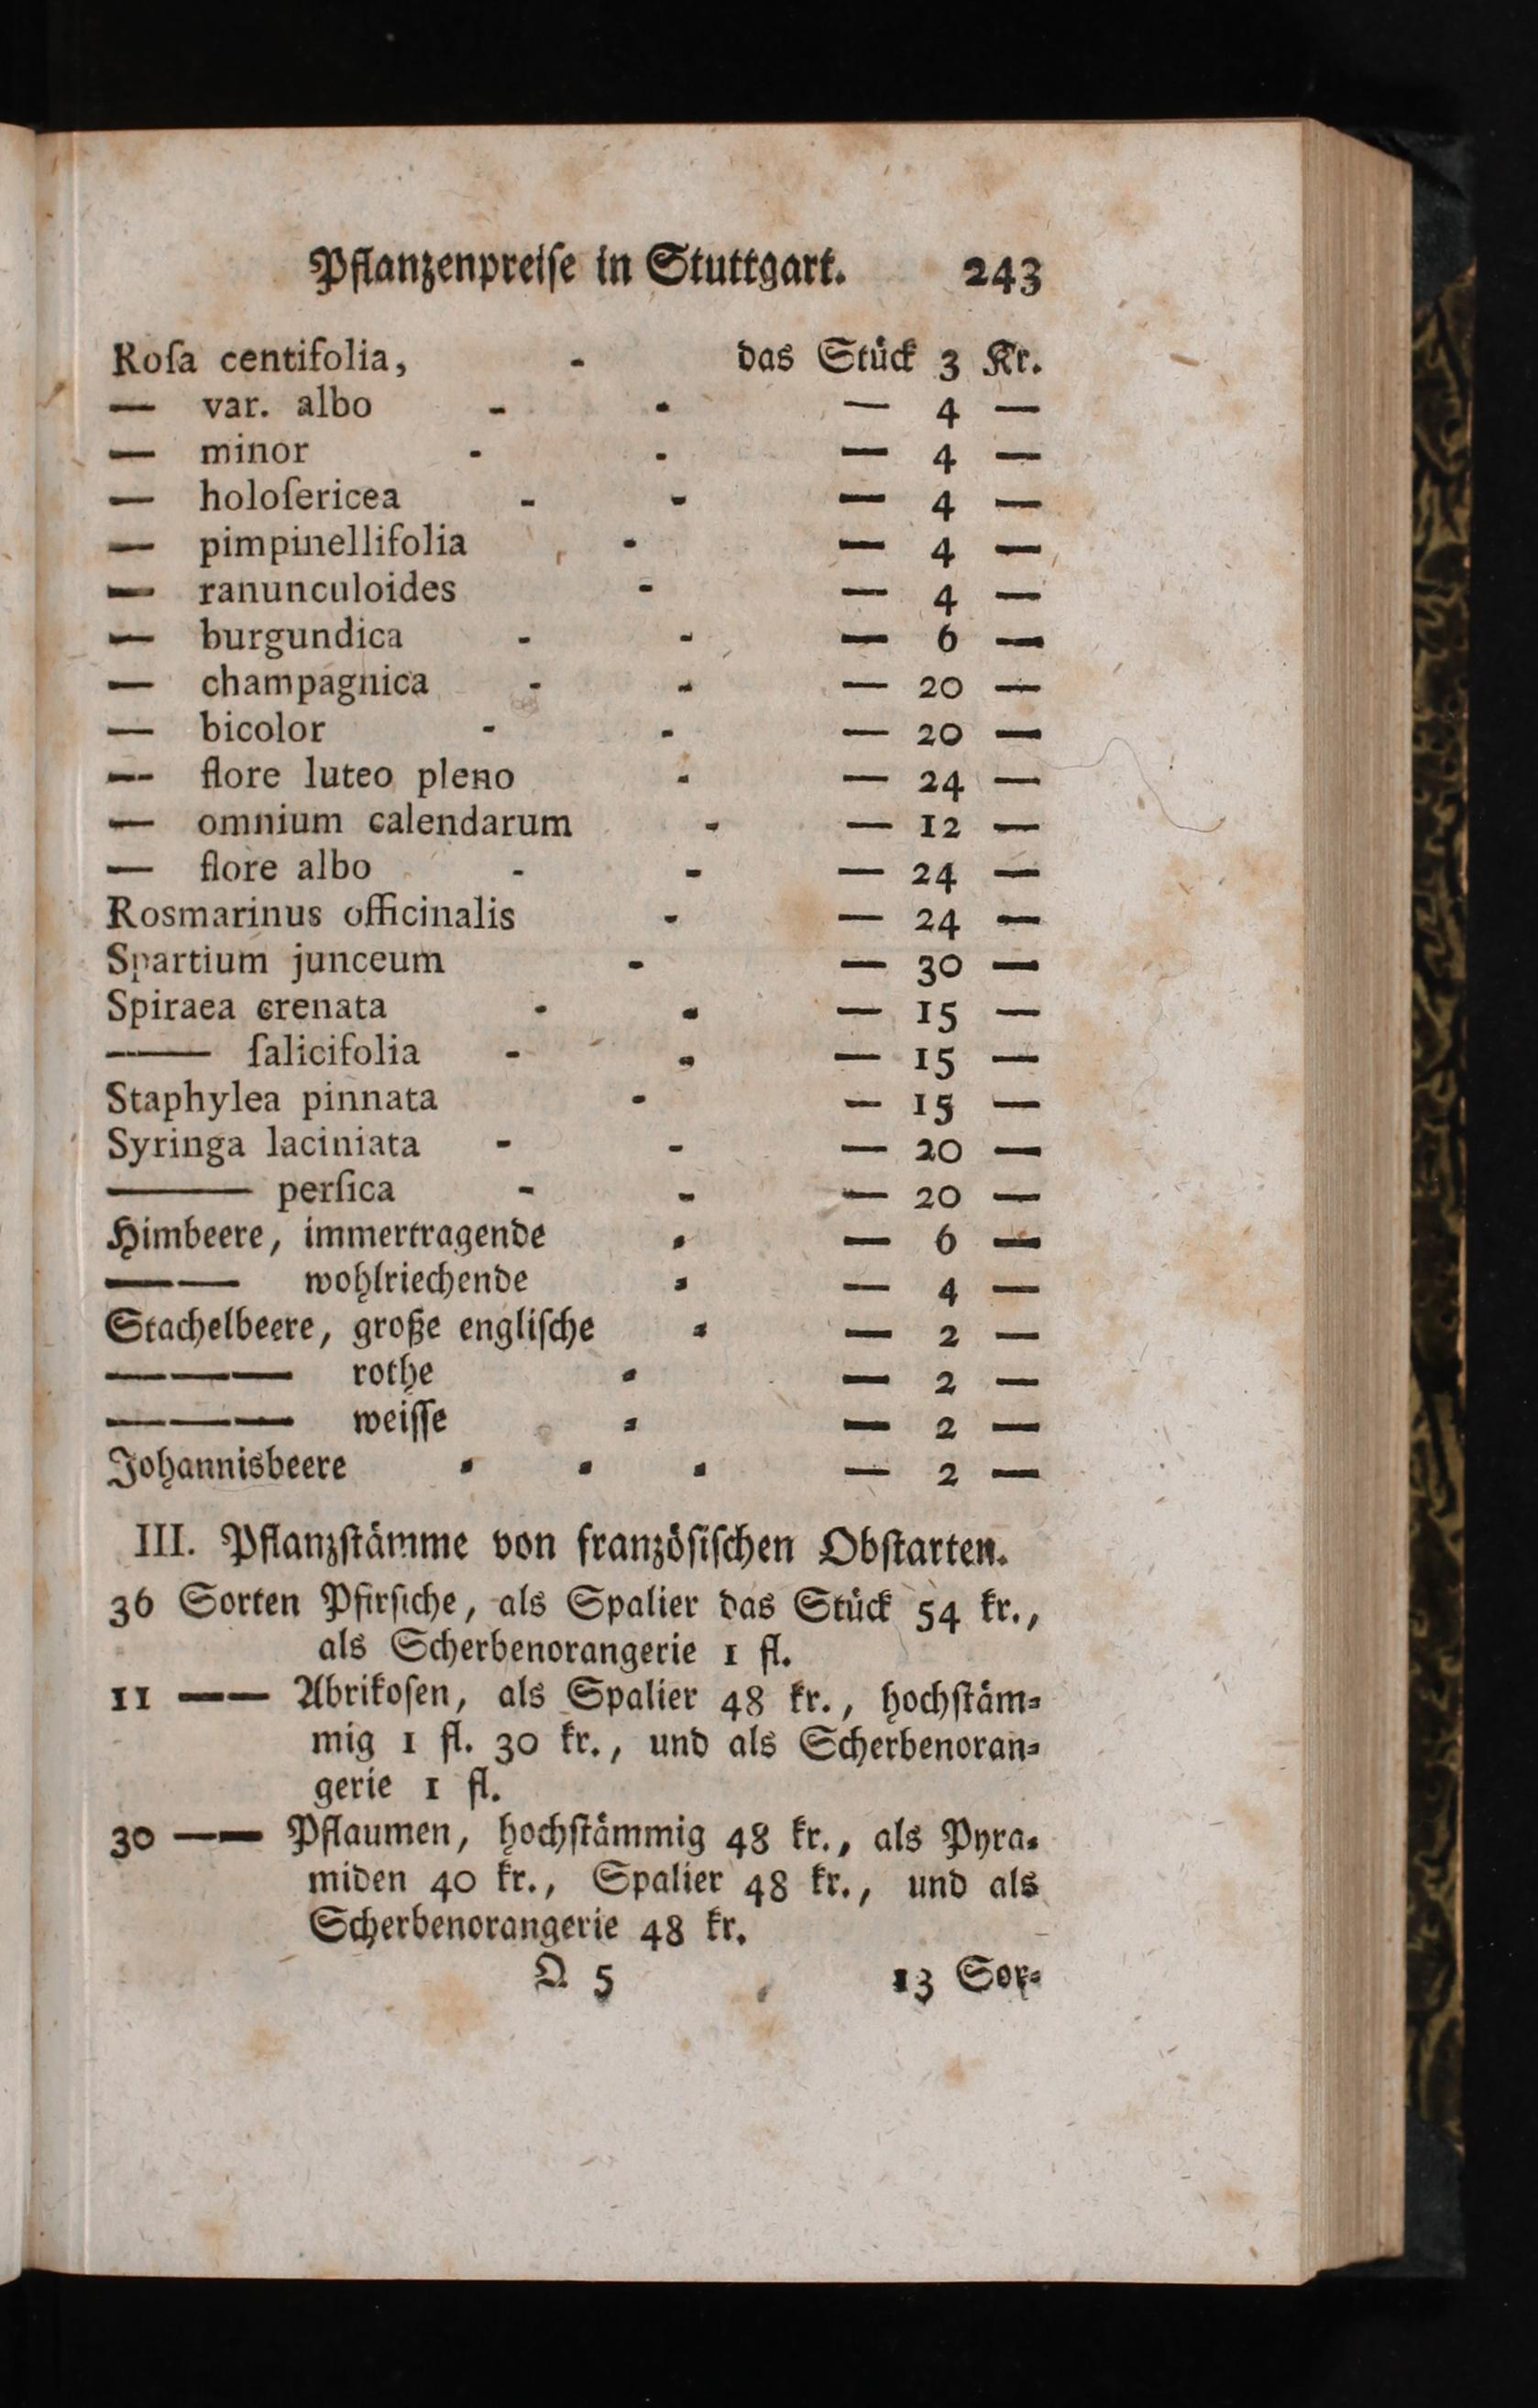 Pflanzenpreiſe in Stuttgart. 243
Roſa centifolia, - das Stück 3 Kr.
— var. albo - - — 4 —
— minor - - — 4 —
— holoſericea - - — 4 —
— pimpinellifolia - — 4 —
— ranunculoides - — 4 —
— burgundica - - — 6 —
— champagnica - - — 20 —
— bicolor - - — 20 —
— flore luteo pleno - — 24 —
— omnium calendarum - — 12 —
— flore albo - - — 24 —
Rosmarinus officinalis - — 24 —
Spartium junceum - — 30 —
Spiraea crenata - - — 15 —
—— ſalicifolia - - — 15 —
Staphylea pinnata - — 15 —
Syringa laciniata - - — 20 —
——— perſica - - — 20 —
Himbeere, immertragende - — 6 —
——— wohlriechende - — 4 —
Stachelbeere, große engliſche - — 2 —
——— rothe - — 2 —
——— weiſſe - — 2 —
Johannisbeere - - - — 2 —
III. Pflanzſtämme von franzöſiſchen Obſtarten.
36 Sorten Pfirſiche, als Spalier das Stück 54 kr.,
als Scherbenorangerie 1 fl.
11 —— Abrikoſen, als Spalier 48 kr., hochſtäm-
mig 1 fl. 30 kr., und als Scherbenoran-
gerie 1 fl.
30 —— Pflaumen, hochſtämmig 48 kr., als Pyra-
miden 40 kr., Spalier 48 kr., und als
Scherbenorangerie 48 kr.
Q 5 13 Sor-